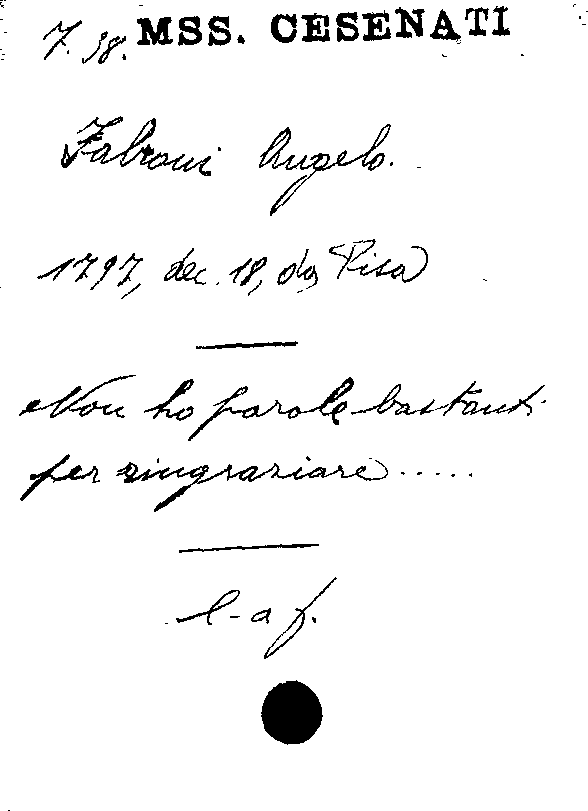 7. 38. MSS. CESENATI
Fabroni Angelo.
1797, dec. 18, da Pisa
Non ho parole bastanti
per ringraziare.....
l-a f.